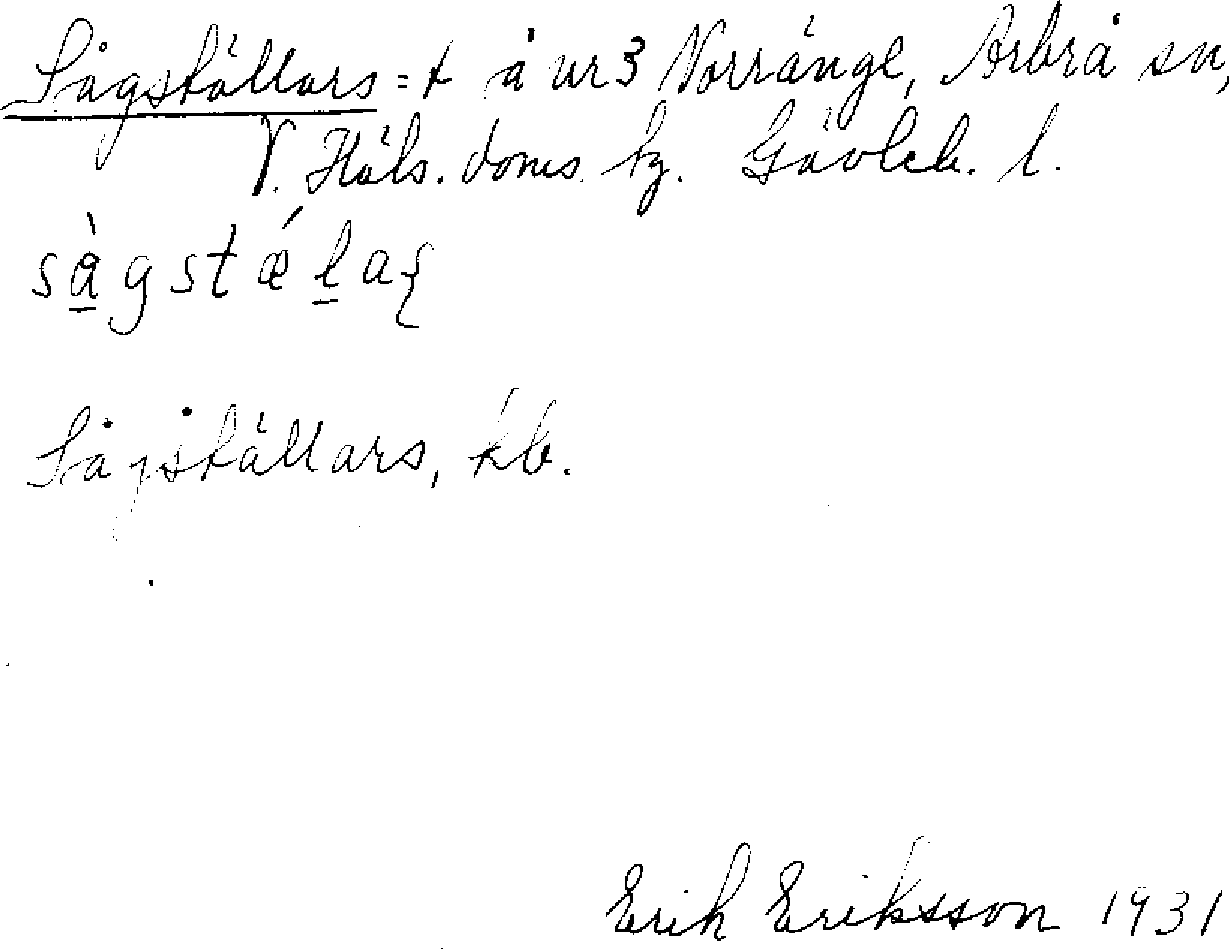 Sågställars = t å nr 3 Norränge, Arbrå sn,
V. Häls. doms. hg. Gävleb. l.
så̀gstǽḻaʂ
Sågställars, kb.
Erik Eriksson 1931